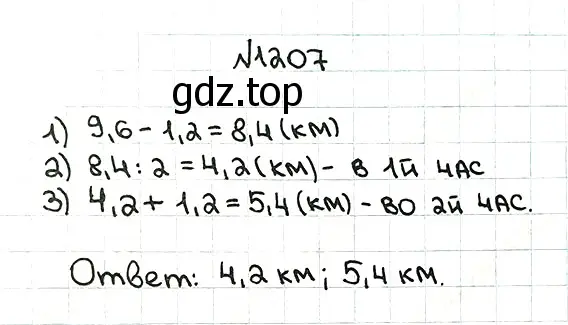 №1207
gdz.top
1) 9,6 - 1,2 = 8,4 (км)
2) 8,4 : 2 = 4,2 (км) - в 1й час
3) 4,2 + 1,2 = 5,4 (км) - во 2й час.
Ответ: 4,2 км; 5,4 км.